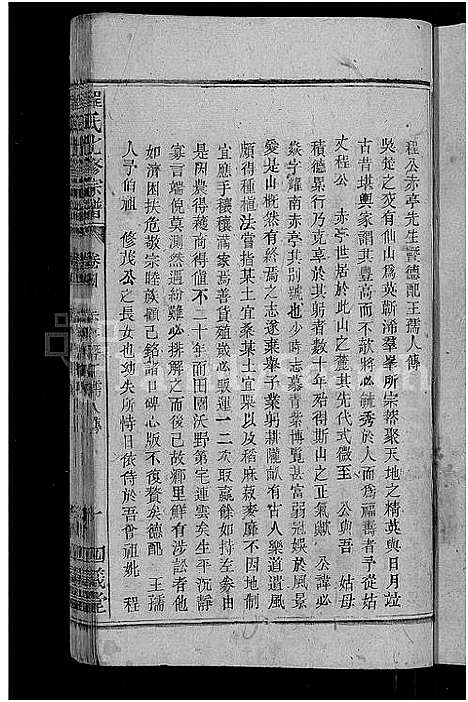 程公赤亭先生暨德配王孺人傳
吳楚之交有仙山為英靳浠羣峯所宗蓋聚天地之精英與日月竝
古昔堪輿家謂其豐高而不欹將必毓秀於人而為福善者予從姑
丈程公 赤亭世居於此山之麓其先代式微至 公與吾 姑母
積德累行乃克享於其躬者數十年殆得斯山之正氣歟 公諱必
焱字耀南赤亭其別號也少時志慕青紫博覽甚富弱冠娛於風景
愛是山概然有終焉之志遂棄舉子業躬耕隴畝有古人樂道遺風
頗得種植法嘗指某土宜桑某土宜栗以及稻麻菽麥靡不因地制
宜應手穰穰滿家焉善貨殖歲必販運一二次取贏餘如持左劵由
是因農得利而值不二十年而田園沃野第宅連雲矣生平沉靜
寡言端倪莫測然遇紛難必排解之而後已故鄉里鮮有涉訟者他
如濟困扶危敬宗睦族顧已銘諸口碑心版不復贅矣德配 王孺
人予伯祖 修茂公之長女也幼失所恃日依侍於吾曾祖妣 程
程氏七修宗譜 卷首 赤亭暨王孺人傳 一 四箴堂